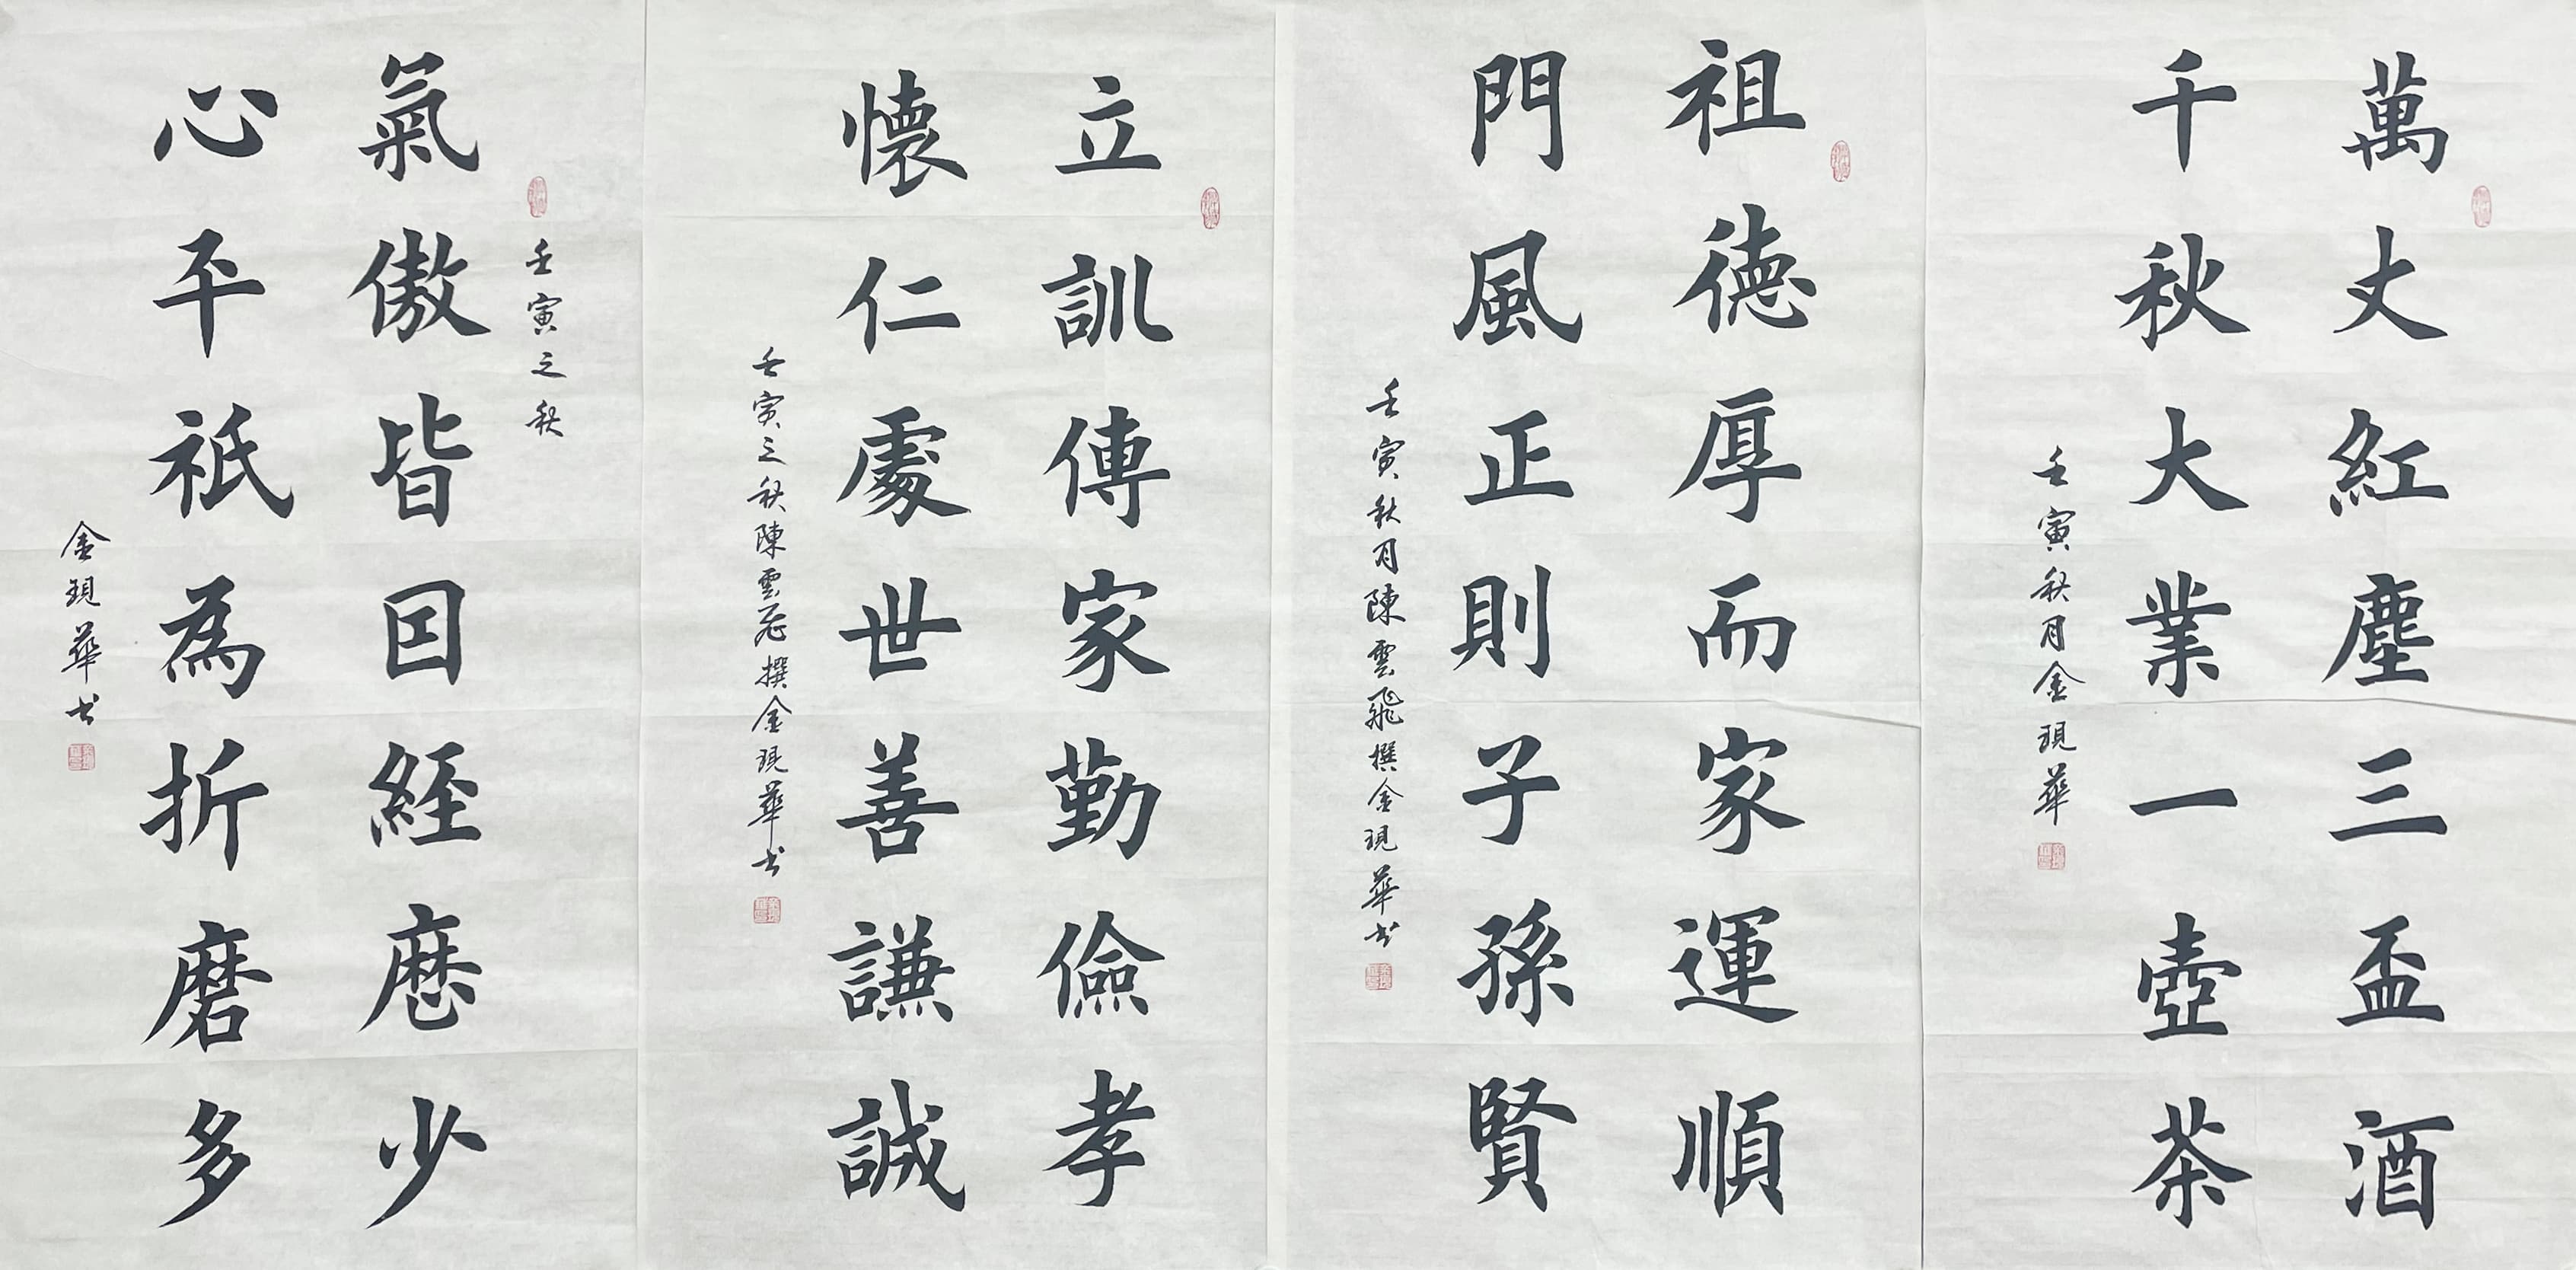 萬丈紅塵三盃酒
千秋大業一壺茶
壬寅秋月金現華
祖德厚而家運順
門風正則子孫賢
壬寅秋月陳雲飛撰金現華书
立訓傳家勤儉孝
懷仁處世善謙誠
壬寅之秋陳雲飛撰金現華书
壬寅之秋
氣傲皆因経歷少
心平祇為折磨多
金現華书